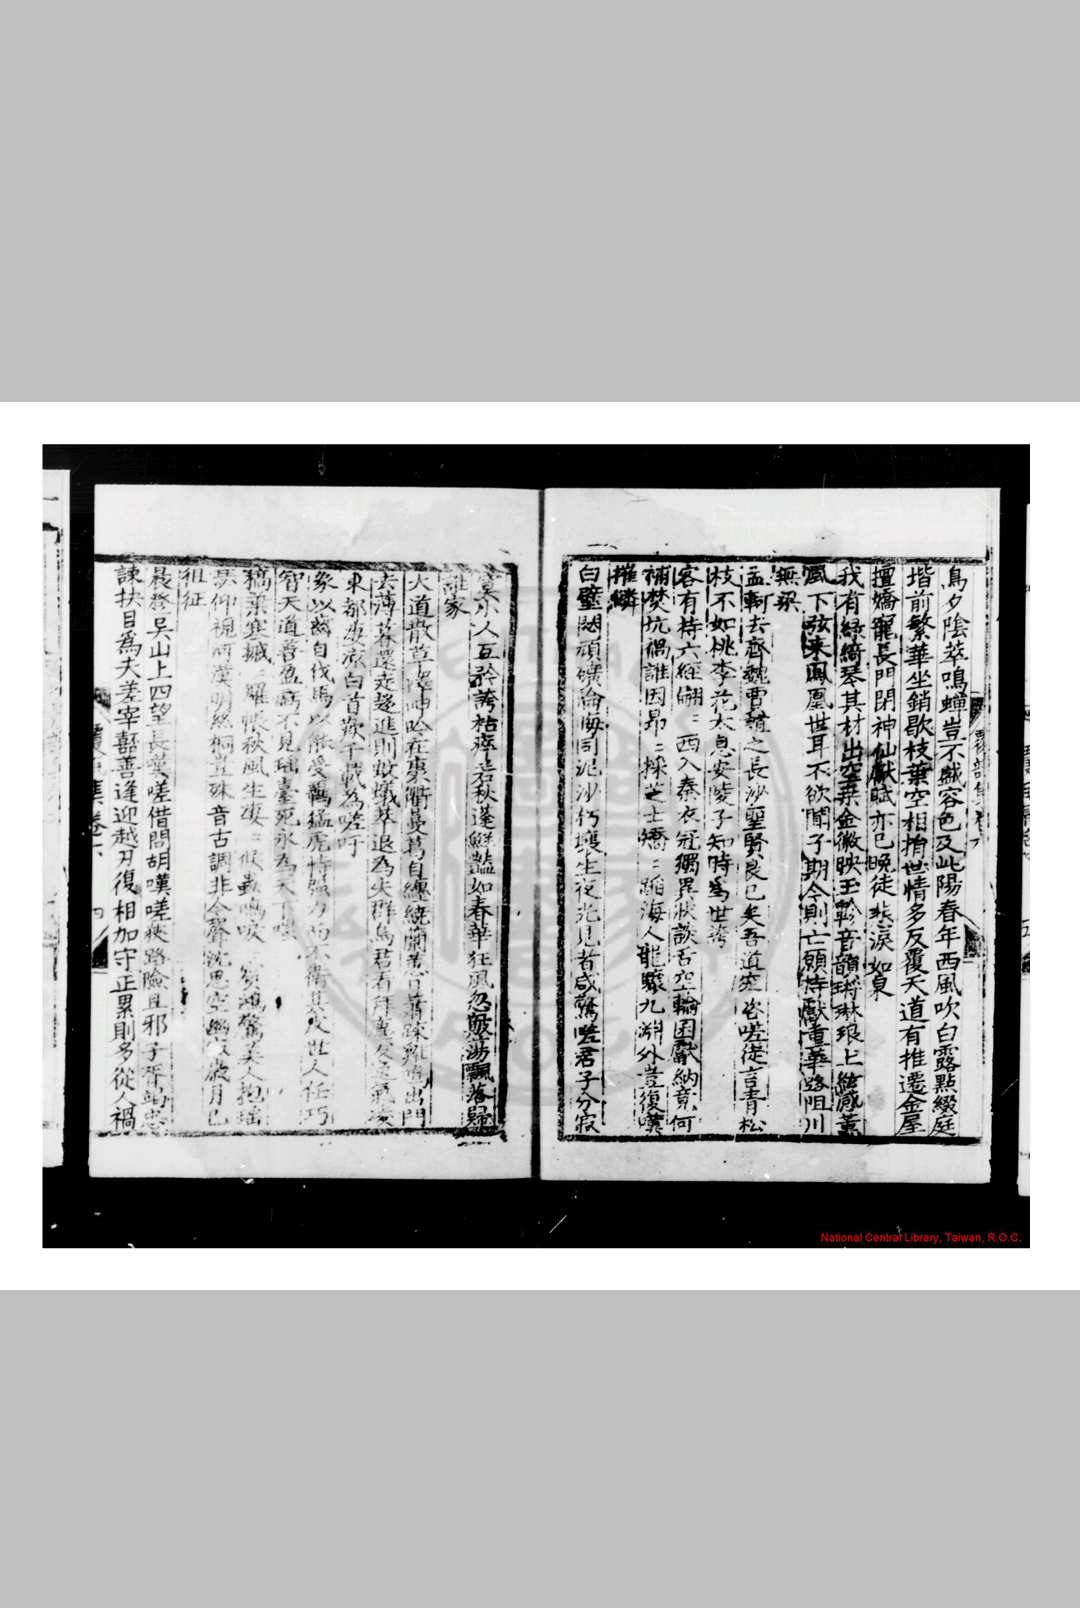 鳥夕陰萃鳴蟬豈不盛容色及此陽春年西風吹白露點綴庭
堦前繁華坐銷歇枝葉空相捐世情多反覆天道有推遷金屋
擅嬌寵長門閉神仙獻賦亦已晚徒悲淚如泉
我有綠綺琴其材出空桑金徽映玉軫音韻琳琅上絃感薰
風下弦來鳳凰世耳不欲聞子期今則亡願持獻重華路阻川
無梁
孟軻去齊魏賈誼之長沙聖賢良已矣吾道空咨嗟徒言青松
枝不如桃李花太息安陵子知時為世誇
客有持六經翩二西入秦衣冠獨異狀談舌空輪囷獻納竟何
補焚坑禍誰因昂二採芝士矯二蹈海人驪九淵外豈復嘆
摧鱗
白璧閟頑礦淪海同泥沙朽壤生夜光見者咸驚嗟君子分寂
寞小人互矜誇枯瘁若秋蓬鮮豔如春華狂風忽飄蕩飄落歸
誰家
大道散草呻吟在康衢蔓葛自纏繞蘭蕙日蕭疎出門
去薄暮還走趨進則蟻萃退為失群烏君看
東都白首歎千載為嗟吁
象以齒自伐馬以能受羈猛虎恃強力而不衛其皮世人任巧
智天道善盈虧不見瑤臺死永為天下嗤
稿葉寒羅帷秋風生凄二候蟲鳴鴻驚美人抱瑤
琴仰視河漢明絲桐豈殊音古調非今聲沈思空幽歲月已
徂征
晨登吳山上四望長嘆嗟借問胡嘆嗟狹路險且邪子胥竭忠
諫抉目為夫差宰嚭善逢迎越刃復相加守正累則多從人禍
覆瓿集卷六
四
National Central Library, Taiwan, R.O.C.